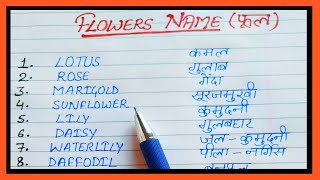 FLOWERS NAME (फूल)
1. LOTUS कमल
2. ROSE गुलाब
3. MARIGOLD गेंदा
4. SUNFLOWER सूरजमुखी
5. LILY कुमुदनी
6. DAISY गुलबहार
7. WATERLILY जल-कुमुदनी
8. DAFFODIL पीला-नर्गिस